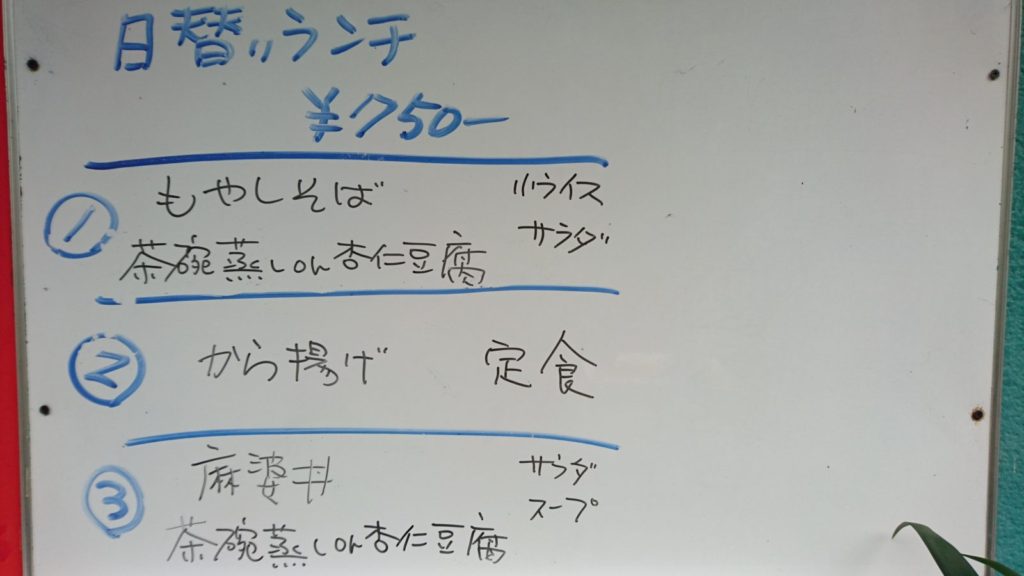 日替りランチ
¥750-
① もやしそば 小ライス
サラダ
茶碗蒸しor杏仁豆腐
② から揚げ 定食
③ 麻婆丼 サラダ
スープ
茶碗蒸しor杏仁豆腐